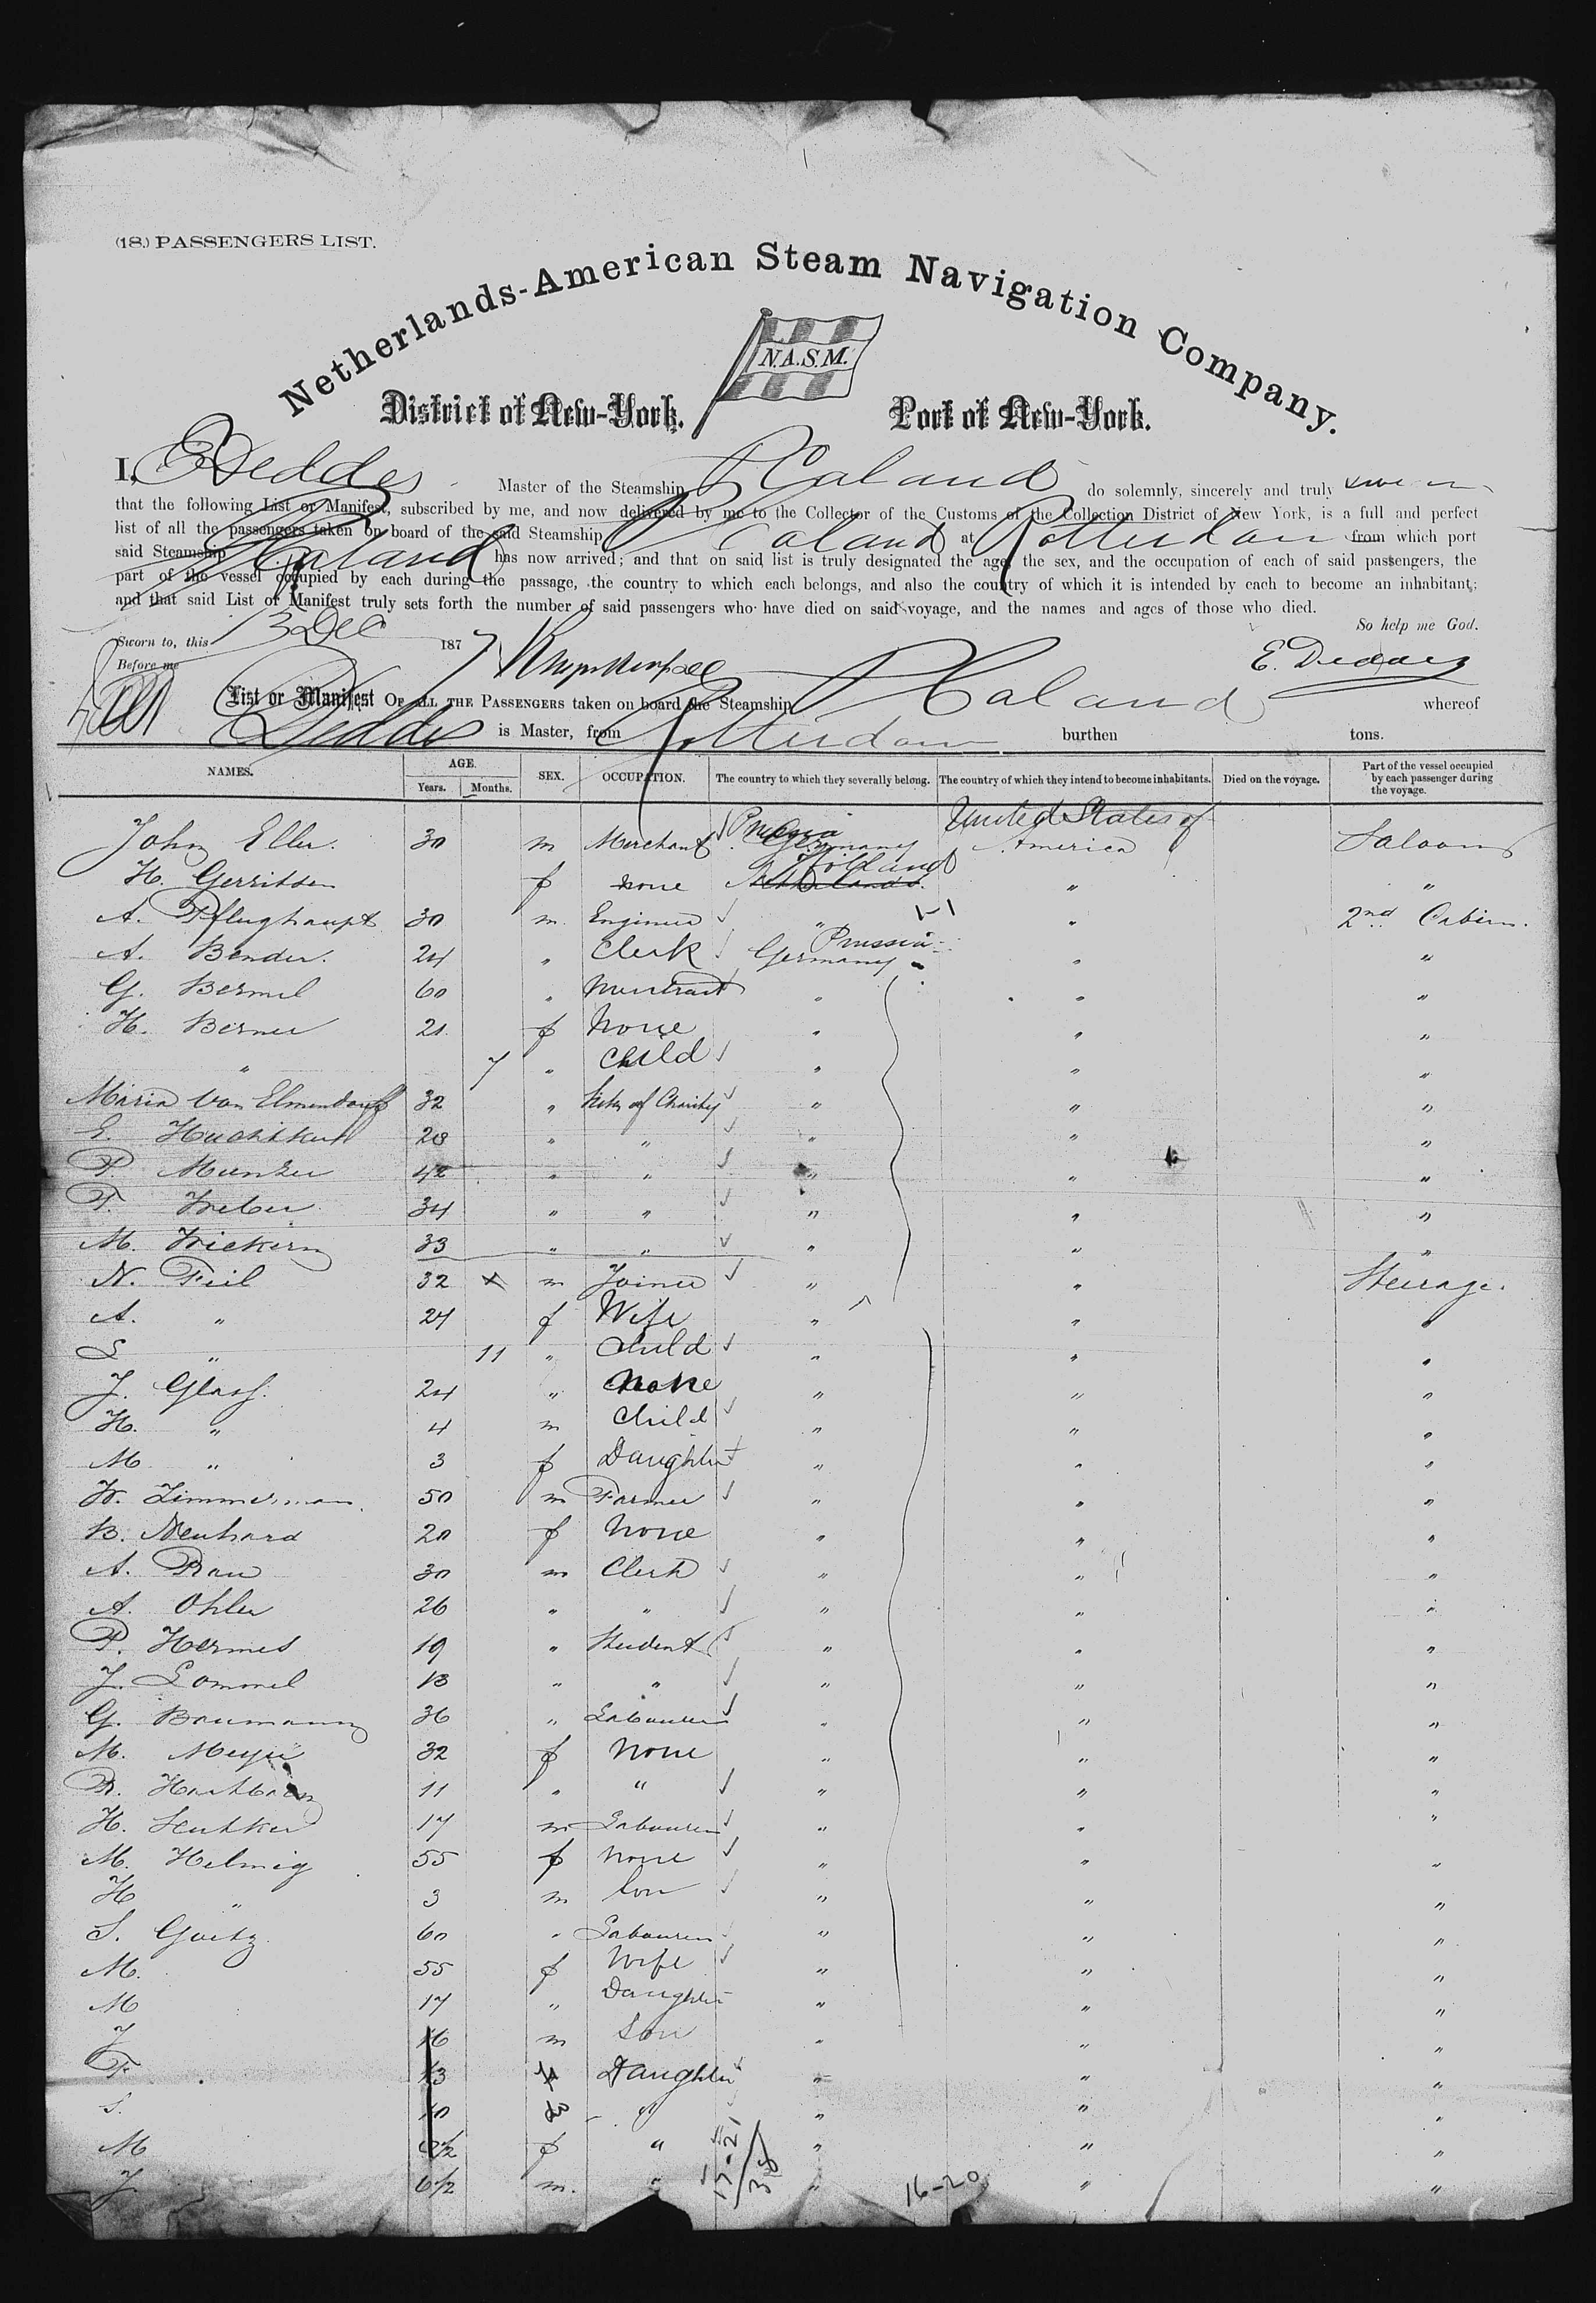 (18.) PASSENGERS LIST.
Netherlands-American Steam Navigation Company.
N.A.S.M.
District of New-York. Port of New-York.
I, E Deddes Master of the Steamship Caland do solemnly, sincerely and truly swear
that the following List or Manifest, subscribed by me, and now delivered by me to the Collector of the Customs of the Collection District of New York, is a full and perfect
list of all the passengers taken on board of the said Steamship Caland at Rotterdam from which port
said Steamship Caland has now arrived; and that on said list is truly designated the age, the sex, and the occupation of each of said passengers, the
part of the vessel occupied by each during the passage, the country to which each belongs, and also the country of which it is intended by each to become an inhabitant;
and that said List or Manifest truly sets forth the number of said passengers who have died on said voyage, and the names and ages of those who died.
So help me God.
Sworn to, this 13 Dec 1877
Before me E. Deddes
List or Manifest OF ALL THE PASSENGERS taken on board the Steamship Caland whereof
Deddes is Master, from Rotterdam burthen tons.
NAMES. AGE. Years. Months. SEX. OCCUPATION. The country to which they severally belong. The country of which they intend to become inhabitants. Died on the voyage. Part of the vessel occupied by each passenger during the voyage.
John Eller. 30 m Merchant Prussia Germany United States of America Saloon
H. Gerritsen f none Holland Netherlands " "
A. Pflughaupt 30 m. Engineer " " 2nd Cabin.
A. Bender. 24 " Clerk Prussia Germany " "
G. Bermel 60 " " " "
H. Berner 21 f None " " "
" 7 " Child " " "
Maria von Elmendorff 32 " Sister of Charity " " "
E. 28 " " " " "
P. Munzer 42 " " " " "
F. Weber 34 " " " " "
M. Frickern 33 " " " " "
N. Feil 32 m Joiner " " Steerage.
A. " 24 f Wife " " "
L " 11 " Child " " "
J. Glass. 24 " None " " "
H. " 4 m Child " " "
M " 3 f Daughter " " "
W. Zimmerman. 50 m Farmer " " "
B. Neuhard 20 f None " " "
A. Rau 30 m Clerk " " "
A. Ohler 26 " " " " "
P. Hermes 19 " Student " " "
J. Lommel 13 " " " " "
G. Baumann 36 " Labourer " " "
M. Meyer 32 f None " " "
R. 11 " " " " "
H. 17 m Labourer " " "
M. Helmig 55 f None " " "
H " 3 m Son " " "
S. Goetz 60 " Labourer " " "
M. 55 f Wife " " "
M 17 " Daughter " " "
J 16 m Son " " "
F. 13 f Daughter " " "
S. 10 " " " "
M f " " " "
J 6 1/2 m. " " " "
16-20